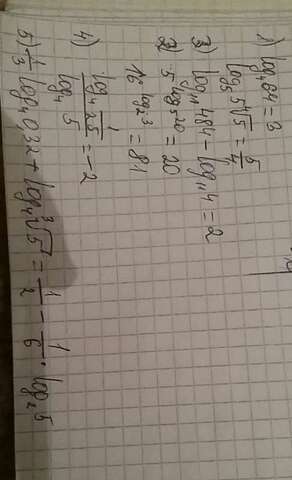 1) log₄64 = 3
log₅ 5⁴√5 = 5/4
3) log₁₁ 484 − log₁₁ 4 = 2
2) 5^log₅20 = 20
16^log₂3 = 81
4) log₄ 1/25 / log₄ 5 = −2
5) −1/3 log₄ 0,32 + log₄ ³√5 = 1/2 − 1/6 · log₂5